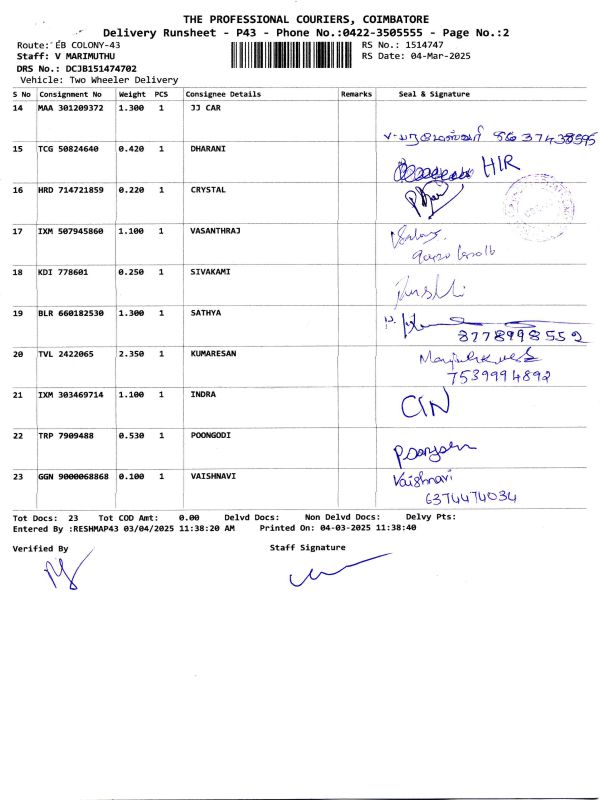 THE PROFESSIONAL COURIERS, COIMBATORE
Delivery Runsheet - P43 - Phone No.:0422-3505555 - Page No.:2
Route: EB COLONY-43 RS No.: 1514747
Staff: V MARIMUTHU RS Date: 04-Mar-2025
DRS No.: DCJB151474702
Vehicle: Two Wheeler Delivery
S No Consignment No Weight PCS Consignee Details Remarks Seal & Signature
14 MAA 301209372 1.300 1 JJ CAR
15 TCG 50824640 0.420 1 DHARANI
HIR
16 HRD 714721859 0.220 1 CRYSTAL
17 IXM 507945860 1.100 1 VASANTHRAJ
18 KDI 778601 0.250 1 SIVAKAMI
19 BLR 660182530 1.300 1 SATHYA
8778998552
20 TVL 2422065 2.350 1 KUMARESAN
7539994892
21 IXM 303469714 1.100 1 INDRA
22 TRP 7909488 0.530 1 POONGODI
23 GGN 9000068868 0.100 1 VAISHNAVI
Vaishnavi
6374474034
Tot Docs: 23 Tot COD Amt: 0.00 Delvd Docs: Non Delvd Docs: Delvy Pts:
Entered By :RESHMAP43 03/04/2025 11:38:20 AM Printed On: 04-03-2025 11:38:40
Verified By Staff Signature